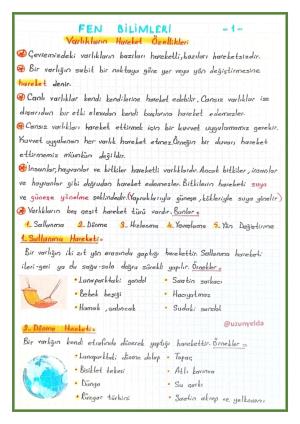 FEN BİLİMLERİ -1-
Varlıkların Hareket Özellikleri
Çevremizdeki varlıkların bazıları hareketli, bazıları hareketsizdir.
Bir varlığın sabit bir noktaya göre yer veya yön değiştirmesine
hareket denir.
Canlı varlıklar kendi kendilerine hareket edebilir. Cansız varlıklar ise
dışarıdan bir etki olmadan başlarına hareket edemezler.
Cansız varlıkları hareket ettirmek için bir kuvvet uygulamamız gerekir.
Kuvvet uygulanan her varlık hareket etmez. Örneğin bir duvarı hareket
ettirmemiz mümkün değildir.
İnsanlar, hayvanlar ve bitkiler hareketli varlıklardır. Ancak bitkiler, insanlar
ve hayvanlar gibi doğrudan hareket edemezler. Bitkilerin hareketi suya
ve güneşe yönelme şeklindedir. (Yapraklarıyla güneşe, kökleriyle suya yönelir)
Varlıkların beş çeşit hareket türü vardır. Bunlar:
1. Sallanma 2. Dönme 3. Hızlanma 4. Yavaşlama 5. Yön Değiştirme
1. Sallanma Hareketi:
Bir varlığın iki zıt yön arasında yaptığı harekettir. Sallanma hareketi
ileri-geri ya da sağa-sola doğru sürekli yapılır. Örnekler:
• Lunaparktaki gondol • Saatin sarkacı
• Bebek beşiği • Hacıyatmaz
• Hamak, salıncak • Sudaki sandal
@uzunyelda
2. Dönme Hareketi:
Bir varlığın kendi etrafında dönerek yaptığı harekettir. Örnekler:
• Lunaparktaki dönme dolap • Topaç
• Bisiklet tekeri • Atlı karınca
• Dünya • Su çarkı
• Rüzgar türbini • Saatin akrep ve yelkovanı